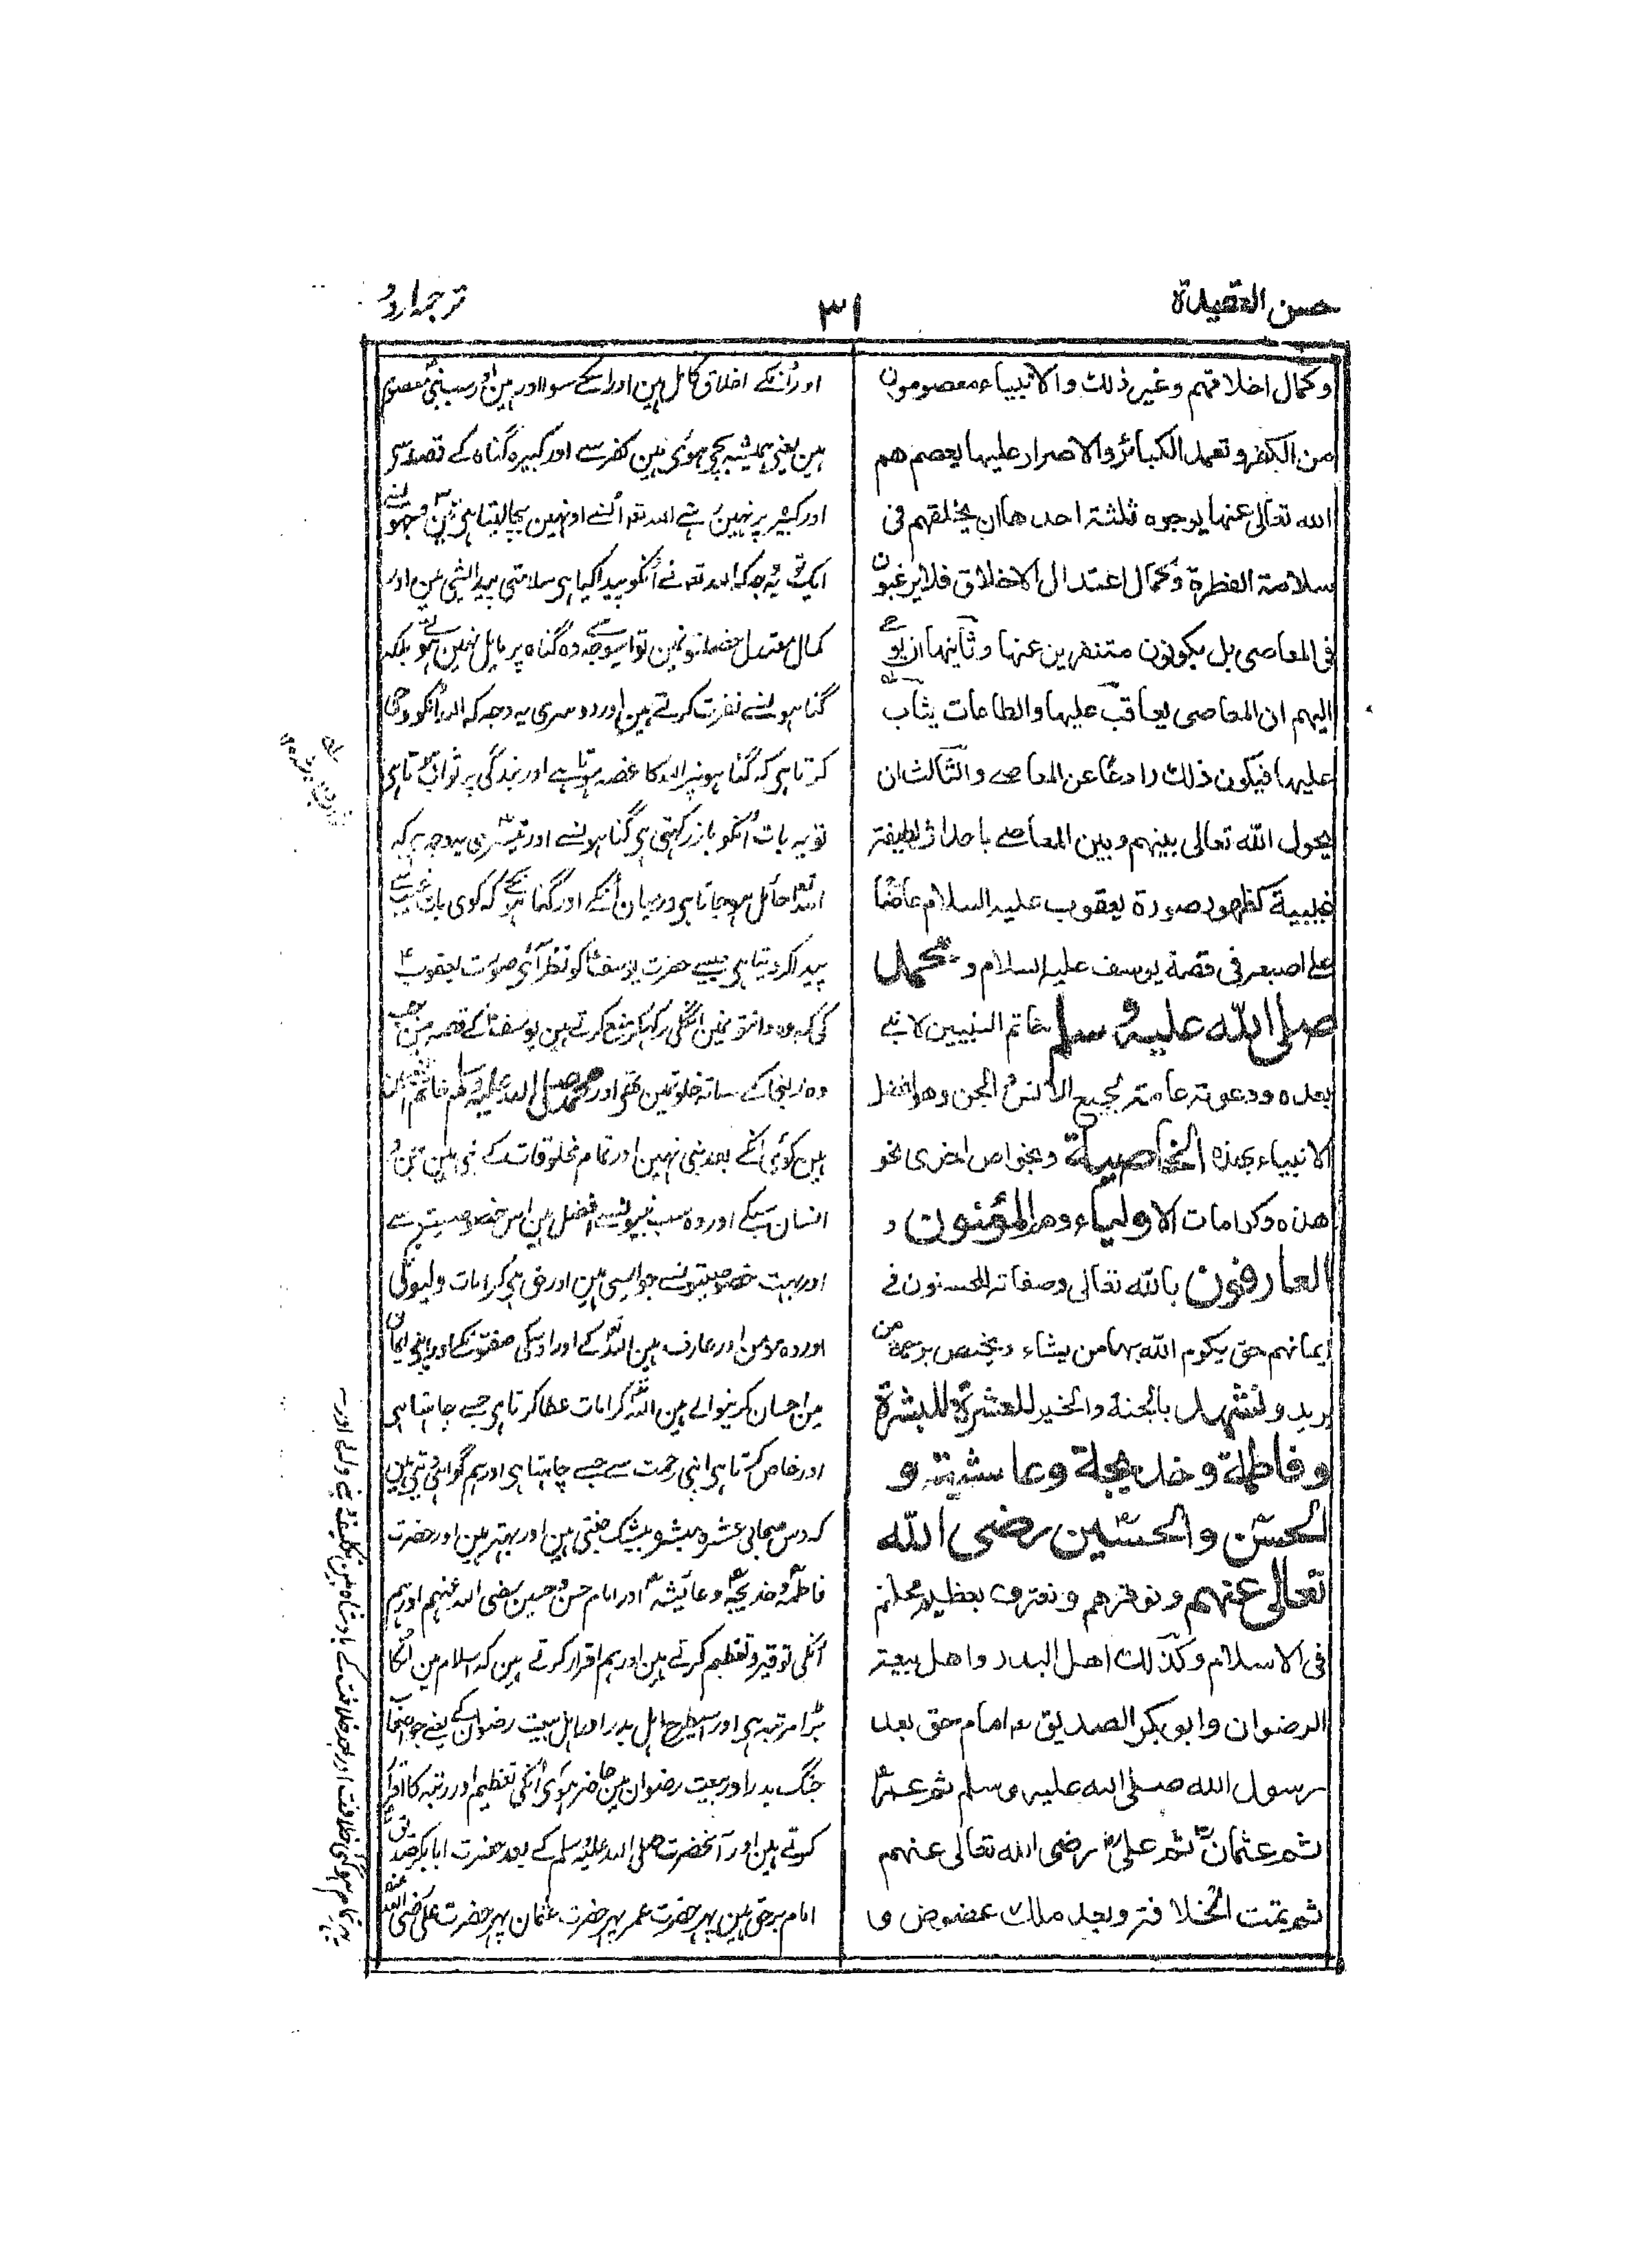 حسن العقيدة
٣١
ترجمہ اردو
وكمال اخلاقهم وغير ذلك والانبياء معصومون
من الكفر وتعمد الكبائر والاصرار عليها يعصمهم
الله تعالى عنها بوجوه ثلثة احدها ان يخلقهم فى
سلامة الفطرة وكمال اعتدال الاخلاق فلا يرغبون
فى المعاصى بل يكونون متنفرين عنها وثانيها ان يوحى
اليهم ان المعاصى يعاقب عليها والطاعات يثاب
عليها فيكون ذلك رادعا عن المعاصى والثالث ان
يحول الله تعالى بينهم وبين المعاصى باحداث لطيفة
غيبية كظهور صورة يعقوب عليه السلام عاضا
على اصبعه فى قصة يوسف عليه السلام ومحمد
صلى الله عليه وسلم خاتم النبيين لا نبى
بعده ودعوته عامة لجميع الانس والجن وهو افضل
الانبياء بهذه الخاصية وبخواص اخرى نحو
هذه وكرامات الاولياء وهم المؤمنون و
العارفون بالله تعالى وصفاته المحسنون فى
ايمانهم حق يكرم الله بها من يشاء ويختص برحمته من
يريد ونشهد بالجنة والخير للعشرة المبشرة
وفاطمة وخديجة وعائشة و
الحسن والحسين رضى الله
تعالى عنهم ونوقرهم ونعترف بعظم محلهم
فى الاسلام وكذلك اهل البدر واهل بيعة
الرضوان وابوبكر الصديق امام حق بعد
رسول الله صلى الله عليه وسلم ثم عمر
ثم عثمان ثم على رضى الله تعالى عنهم
ثم تمت الخلافة وبعده ملك عضوض و
اور اُنکے اخلاق کامل ہین اور اسکے سوا اور ہین اور سب نبی معصوم
ہین یعنی ہمیشہ بچی ہوئی ہین کفر سے اور کبیرہ گناہ کے قصد سے
اور کبیرہ پر نہین اللہ تعہ اُنسے اونہین بچا لیتا ہی تین وجہونسے
ایک تو یہ کہ اللہ تعہ نے اُنکو پیدا کیا ہی سلامتی پیدایشی مین اور
کمال معتدل خصلتونمین تو اسیوجہ سے وہ گناہ پر مایل نہین ہوتے بلکہ
گناہونسے نفرت کرتے ہین اور دوسری یہ وجہ کہ اللہ اُنکو وحی
کرتا ہی کہ گناہونپر اللہ کا غصہ ہوتا ہے اور بندگی پر ثواب دیتا ہی
تو یہ بات اُنکو باز رکہتی ہی گناہونسے اور تیسری یہ وجہ ہی کہ
اللہ حائل ہو جاتا ہی درمیان اُنکے اور گناہونکے کہ کوی بات غیب سے
پیدا کر دیتا ہی جیسے حضرت یوسف کو نظر آئی صورت یعقوب
کی کہ وہ دانتونمین انگلی رکہکر منع کرتے ہین یوسف کے قصہ مین جب
وہ زلیخا کے ساتہ خلوتمین تہی اور محمد صلی اللہ علیہ وسلم خاتم النبیین
ہین کوئی انکے بعد نبی نہین اور تمام مخلوقات کے نبی ہین جن و
انسان سبکے اور وہ سب نبیونسے افضل ہین اس خصوصیت سے
اور بہت خصوصیتونسے جو ایسی ہین اور حق ہی کرامات ولیونکی
اور وہ مومن اور عارف ہین اللہ کے اور اوسکی صفتونکے اور اپنی ایمان
مین احسان کرنیوالے ہین اللہ کرامات عطا کرتا ہی جسے چاہتا ہی
اور خاص کرتا ہی اپنی رحمت سے جسے چاہتا ہی اور ہم گواہی دیتی ہین
کہ دس صحابی عشرہ مبشرہ بیشک جنتی ہین اور بہتر ہین اور حضرت
فاطمہ و خدیجہ و عائیشہ اور امام حسن و حسین رضی اللہ عنہم اور ہم
اُنکی توقیر و تعظیم کرتے ہین اور ہم اقرار کرتے ہین کہ اسلام مین اُنکا
بڑا مرتبہ ہی اور اسیطرح اہل بدر اور اہل بیعت رضوان کے یعنے جو اصحاب
جنگ بدر اور بیعت رضوان مین حاضر ہوئی اُنکی تعظیم اور رتبہ کا اقرار
کرتے ہین اور آنحضرت صلی اللہ علیہ وسلم کے بعد حضرت ابابکر صدیق
امام برحق ہین پہر حضرت عمر پہر حضرت عثمان پہر حضرت علی رضی اللہ عنہ
پہر تمام ہوگئی خلافت اور بعد خلافت کے بادشاہ ہین تکلیف دینے والے اور